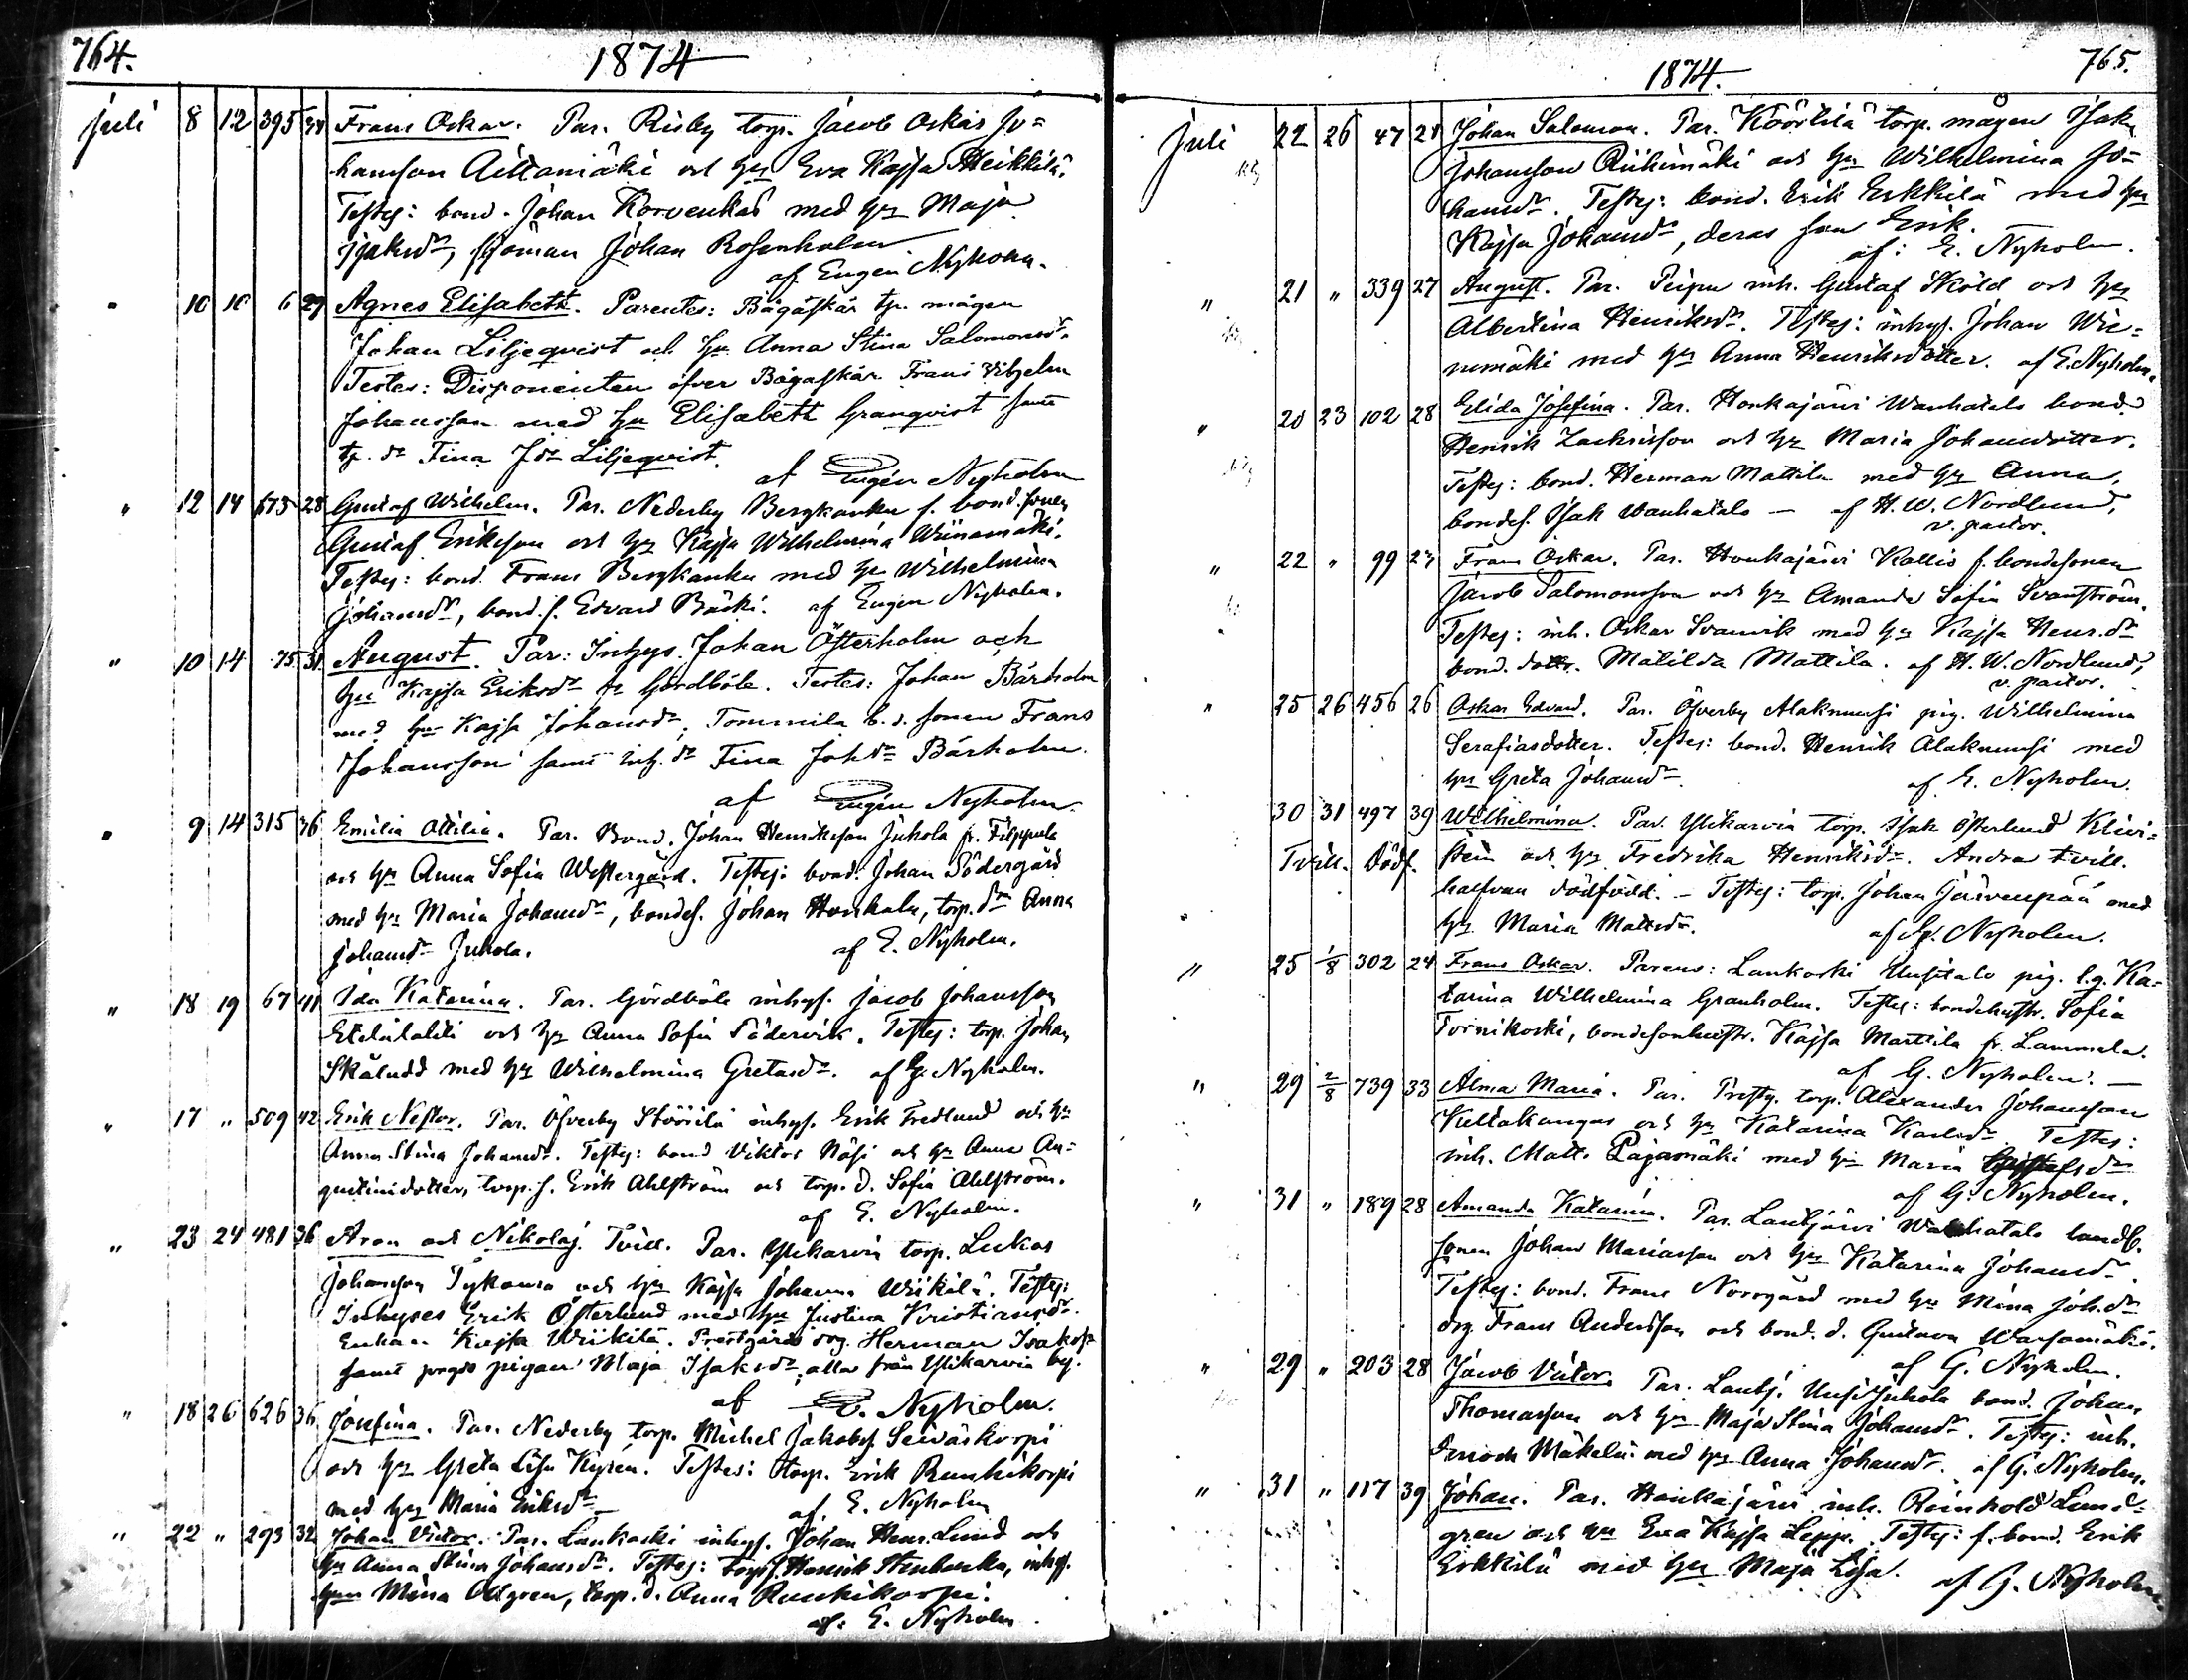 764.
1874
Juli 8 12 395 34 Frans Oskar. Par. Risby torp. Jacob Oskar Jo=
hansson Aittamäki och hu Eva Kajsa Heikkilä.
Testes: bond. Johan Korvenkas med hu Maja
Isaksdr, sjöman Johan Rosenholm
af Eugen Nyholm.
" 10 10 6 27 Agnes Elisabeth. Parentes: Bågaskär tp. mågen
Johan Liljeqvist och hu Anna Stina Salomonsdr.
Testes: Disponenten öfver Bågaskär Frans Vilhelm
Johansson med hu Elisabeth Granqvist samt
tp. dr Fina Jdr Liljeqvist.
af Eugén Nyholm
" 12 14 673 28 Gustaf Wilhelm. Par. Nederby Bergkanku f. bond. sonen
Gustaf Eriksson och hu Kajsa Wilhelmina Wiinamäki.
Testes: bond. Frans Bergkanku med hu Wilhelmina
Johansdr, bond. s. Edvard Bäcki. af Eugen Nyholm.
" 10 14 75 31 August. Par: Inhys. Johan Österholm och
hu Kajsa Eriksdr fr Gördböle. Testes: Johan Bärholm
med hu Kajsa Johansdr, Tommila b. s. sonen Frans
Johansson samt inh. dr Fina Johdr Bärholm.
af Eugén Nyholm.
" 9 14 315 36 Emilia Ottilia. Par. Bond. Johan Henriksson Juhola fr. Filppula
och hu Anna Sofia Westergård. Testes: bond. Johan Södergård
med hu Maria Johansdr, bondes. Johan Honkala, torp. dr Anna
Johansdr Juhola. af E. Nyholm.
" 18 19 67 41 Ida Katarina. Par. Gördböle inhys. Jacob Johansson
Etelätalo och hu Anna Sofia Södervik. Testes: torp. Johan
Skäludd med hu Wilhelmina Gretasdr. af E. Nyholm.
" 17 " 509 42 Erik Nestor. Par. Öfverby Stöörilä inhys. Erik Fredlund och hu
Anna Stina Johansdr. Testes: bond Viktor Näsi och hu Anna Au=
gustinidotter, torp. s. Erik Ahlström och torp. d. Sofia Ahlström.
af E. Nyholm.
" 23 24 481 36 Aron och Nikolaj. Tvill. Par. Ylikarvia torp. Lukas
Johansson Pykoura och hu Kajsa Johanna Wiikilä. Testes:
Inhyses Erik Österlund med hu Justina Kristiansdr.
Enkan Kajsa Wiikilä. Prestgårds drg. Herman Isaksson
samt pigan Maja Isaksdr, alla från Ylikarvia by.
af E. Nyholm.
" 18 26 626 36 Josefina. Par. Nederby torp. Michel Jakobss. Seiväskorpi
och hu Greta Lisa Kyrén. Testes: torp. Erik Ruuhikorpi
med hu Maria Eriksdr af E. Nyholm
" 22 " 293 32 Johan Victor. Par. Lankoski inhys. Johan Henr. Lind och
hu Anna Stina Johansdr. Testes: torps. Henrik Stenbacka, inhys.
hu Mina Ahlgren, torp. d. Anna Ruuhikorpi.
af: E. Nyholm.
1874.
765.
Juli 22 26 47 21 Johan Salomon. Par. Köörtilä torp. mågen Isak
Johansson Riihimäki och hu Wilhelmina Jo=
hansdr. Testes: bond. Erik Erkkilä med hu
Kajsa Johansdr, deras son Erik.
af: E. Nyholm.
" 21 " 339 27 August. Par. Peipu inh. Gustaf Sköld och hu
Albertina Henriksdr. Testes: inhys. Johan Wii=
nimäki med hu Anna Henriksdotter. af E. Nyholm.
" 20 23 102 28 Elida Josefina. Par. Honkajärvi Wanhatalo bond.
Henrik Zachrisson och hu Maria Johansdotter.
Testes: bond. Herman Mattila med hu Anna,
bondes. Isak Wanhatalo — af H. W. Nordlund,
v. pastor.
" 22 " 99 23 Frans Oskar. Par. Honkajärvi Kallio f. bondesonen
Jacob Salomonsson och hu Amanda Sofia Svanström.
Testes: inh. Oskar Svanvik med hu Kajsa Henr. dr
bond. dottr. Matilda Mattila. af H. W. Nordlund,
v. pastor.
" 25 26 456 26 Oskar Edvard. Par. Öfverby Alaknuusi pig. Wilhelmina
Serafiasdotter. Testes: bond. Henrik Alaknuusi med
hu Greta Johansdr. af E. Nyholm.
30 31 497 39 Wilhelmina. Par. Ylikarvia torp. Isak Österlund Kiwi=
Tvill. Dödf. stein och hu Fredrika Henriksdr. Andra tvill.
halfvan dödfödd. — Testes: torp. Johan Järvenpää med
hu Maria Mattsdr. af G. Nyholm.
" 25 1/8 302 24 Frans Oskar. Parens: Lankoski Uusitalo pig. l.g. Ka=
tarina Wilhelmina Granholm. Testes: bondehustr. Sofia
Tornikoski, bondesonhustr. Kajsa Marttila fr. Lammela.
af G. Nyholm. —
" 29 2/8 739 33 Alma Maria. Par. Prestg. torp. Alexander Johansson
Kellokangas och hu Katarina Karlsdr. Testes:
inh. Matts Pajamäki med hu Maria Gustafsdr
af G. Nyholm.
" 31 " 189 28 Amanda Katarina. Par. Lautjärvi Wanhatalo landb.
sonen Johan Mariasson och hu Katarina Johansdr.
Testes: bond. Frans Norrgård med hu Mina Joh. dr
drg. Frans Andersson och bond. d. Gustava Warsamäki.
af G. Nyholm.
" 29 " 203 28 Jacob Victor. Par. Lautj. Uusi Juhola bond. Johan
Thomasson och hu Maja Stina Johansdr. Testes: inh.
Enoch Mäkelä med hu Anna Johansdr. af G. Nyholm.
" 31 " 117 39 Johan. Par. Honkajärvi inh. Reinhold Lund=
gren och hu Eva Kajsa Leppe. Testes: f. bond. Erik
Erkkilä med hu Maja Lisa. af G. Nyholm.